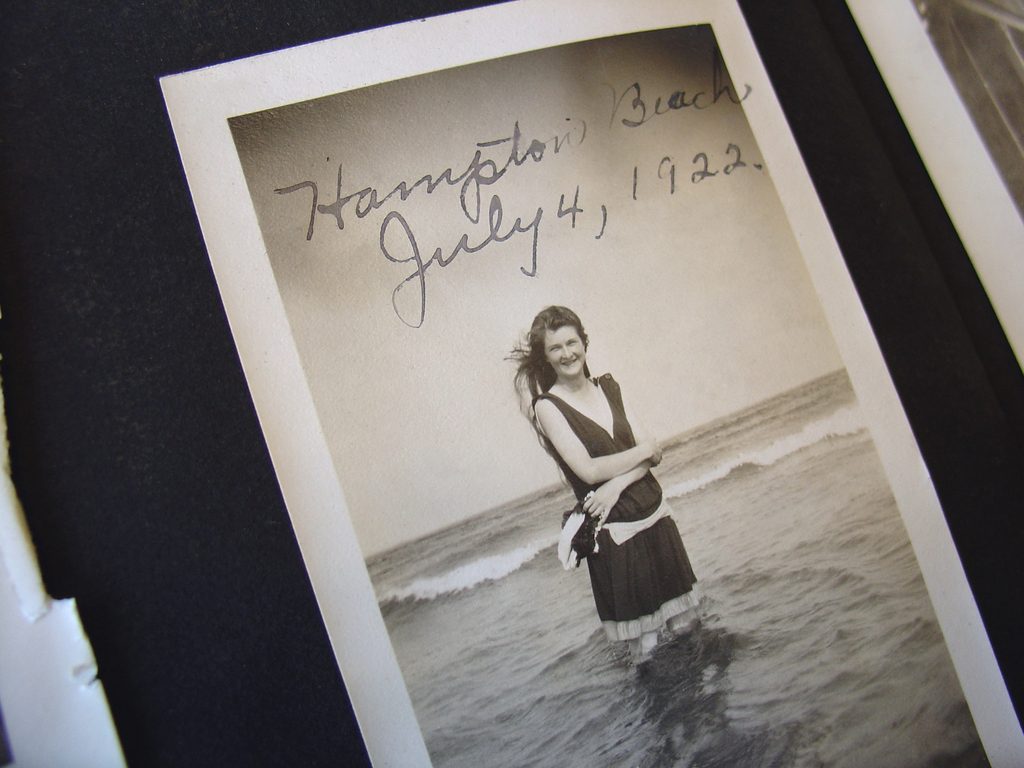 Hampton Beach
July 4, 1922.